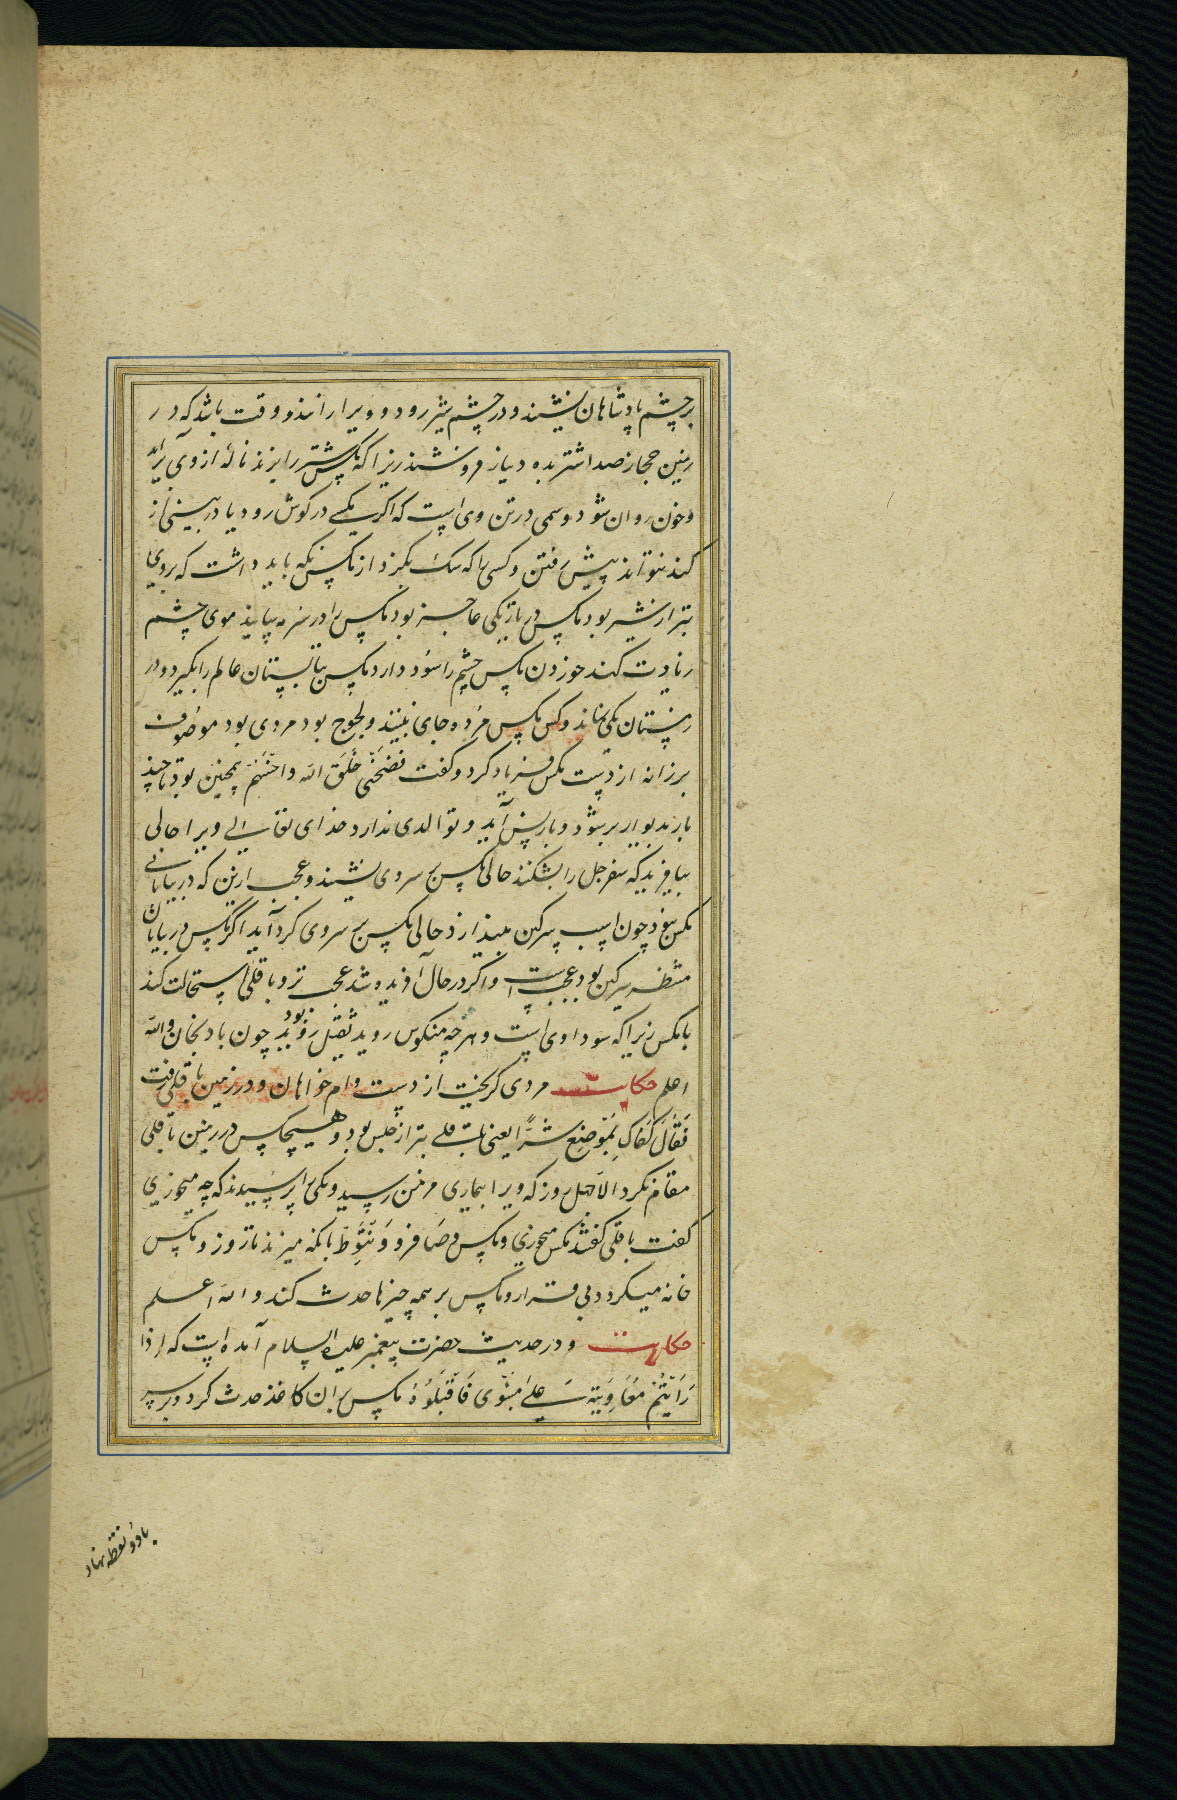 بر چشم پادشاهان نشیند و در چشم شیر رود و ویرا براند و وقت باشد که در
زمین حجاز صد اشتر بده دینار فروشند زیرا که مکس شتر را بزند ناله از وی برآید
و خون روان شود و سمی در تن وی است که اکر یکی در کوش رود یا در بینی
کند نتواند پیش رفتن و کسی را که سک بکزد از مکس نکه باید داشت که بر وی
بتر از شیر بود مکس در تاریکی عاجز بود مکس را در سرمه بسایند موی چشم
زیادت کند خوردن مکس چشم را سود دارد مکس بتابستان عالم را بکیرد و در
زمستان یکی نماند و کس مکس مرده جای نبیند و لجوج بود مردی بود موصوف
برزانه از دست مکس فریاد کرد و کفت فضحتنی خلق الله همچنین بود تا چند
بار بدیوار بر شود و باز پس آید و توالدی ندارد خدای تعالی ویرا حالی
بیافریند که سفرجل را بشکنند حالی مکس بر سر وی نشیند و عجب از این که در بیابانی
مکس نبود چون اسب سرکین بیندازد حالی مکس بر سر وی کرد آید اکر مکس در بیابان
منتظر سرکین بود عجب است و اکر در حال آفریده شد عجب تر و باقلی استحالت کند
با مکس زیرا که سوداوی است و هرچه منکوس روید ثقیل بود چون بادنجان والله
اعلم حکایت مردی کریخت از دست وام خواهان و در زمین باقلی رفت
فقال کفاک بموضع شرا یعنی باقلی بتر از حبس بود و هیچکس در زمین باقلی
مقام نکرد الا چهل روز که ویرا بیماری مزمن رسید و مکی را پرسیدند که چه میخوری
کفت باقلی کفتند مکس میخوری و مکس بانکه میزند تا روز و مکس
خانه میکردد بی قرار و مکس بر همه چیزها حدث کند و الله اعلم
حکایت و در حدیث حضرت پیغمبر علیه السلام آمده است که اذا
رایتم معاویة علی منبری فاقتلوه مکس بر آن کاغذ حدث کرد و بر سر
با دو نقطه نهاد